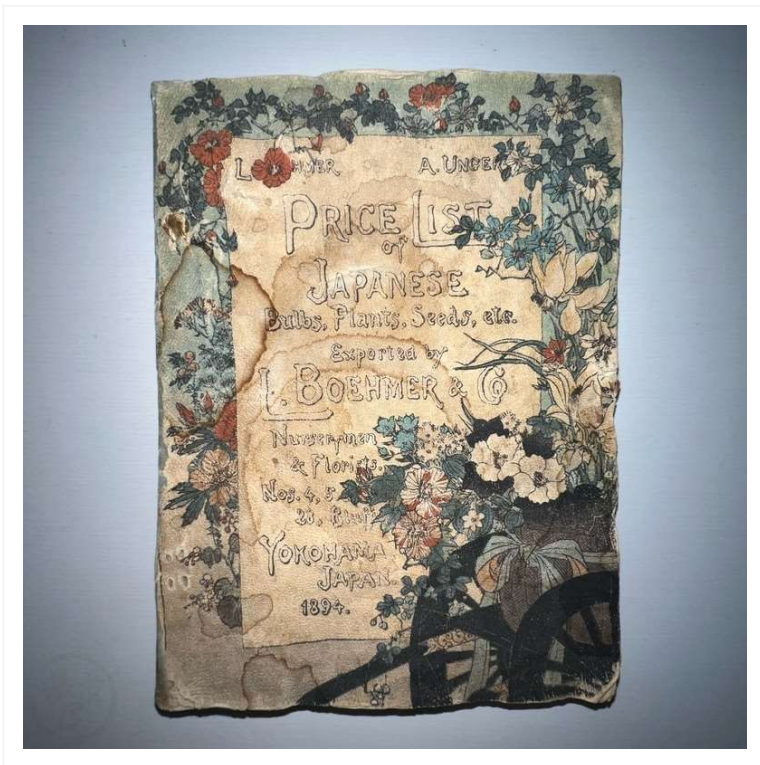 A. UNGER
PRICE LIST
of
JAPANESE
Bulbs, Plants, Seeds, etc.
Exported by
L. BOEHMER & Co
Nurserymen
& Florists.
Nos. 4, 5
28, Bluff
YOKOHAMA
JAPAN.
1894.